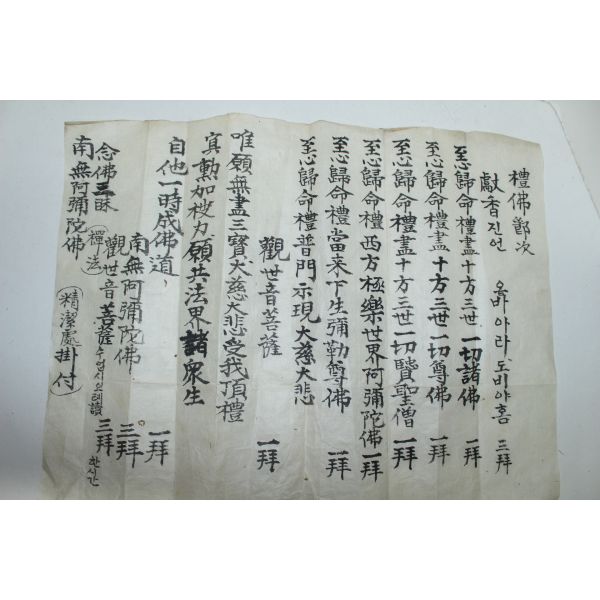 禮佛節次
獻香진언 옴바아라도비아훔 三拜
至心歸命禮盡十方三世一切諸佛 一拜
至心歸命禮盡十方三世一切尊佛 一拜
至心歸命禮盡十方三世一切賢聖僧 一拜
至心歸命禮西方極樂世界阿彌陀佛 一拜
至心歸命禮當來下生彌勒尊佛 一拜
至心歸命禮普門示現大慈大悲
觀世音菩薩 一拜
唯願無盡三寶大慈大悲受我頂禮
冥勳加被力願共法界諸衆生
自他一時成佛道 一拜
南無阿彌陀佛 三拜
觀世音菩薩 三拜
念佛三昧(禪法) 한시간
南無阿彌陀佛 精潔處掛付